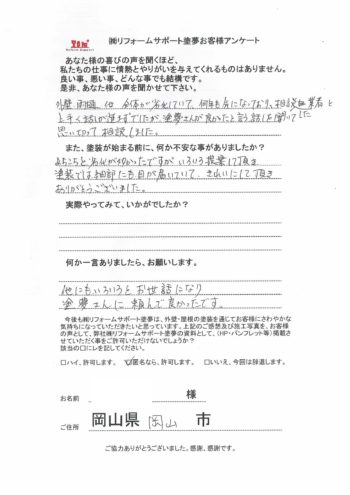 ㈱リフォームサポート塗夢お客様アンケート
あなた様の喜びの声を聞くほど、
私たちの仕事に情熱とやりがいを与えてくれるものはありません。
良い事、悪い事、どんな事でも結構です。
是非、あなた様の声を聞かせて下さい。
外壁 雨樋 他 全体が劣化していて、何年も気になっており、相談 業者と
上手く話しが進まずでしたが、塗夢さんが良かったと言う話しを聞いて
思い切って相談しました。
また、塗装が始まる前に、何か不安な事がありましたか？
あちこちと劣化が切かったですがいろいろ提案して頂き
塗装では細部にも目が届いていて、きれいにして頂き
ありがとうございました。
実際やってみて、いかがでしたか？
何か一言ありましたら、お願いします。
他にもいろいろとお世話になり
塗夢さんに頼んで良かったです。
今後も㈱リフォームサポート塗夢は、外壁・屋根の塗装を通じてお客様にさわやかな
気持ちになっていただきたいと思っています。上記のご感想及び施工写真を、お客様
の声として、弊社㈱リフォームサポート塗夢の資料として、（HP・パンフレット等）掲載さ
せていただく事をご許可いただけないでしょうか？
該当の□にレを記してください。
□ハイ、許可します。 ☑匿名なら、許可します。 □いいえ、今回は辞退します。
お名前 様
ご住所 岡山県 岡山 市
ご協力ありがとうございました。感謝、感謝です。